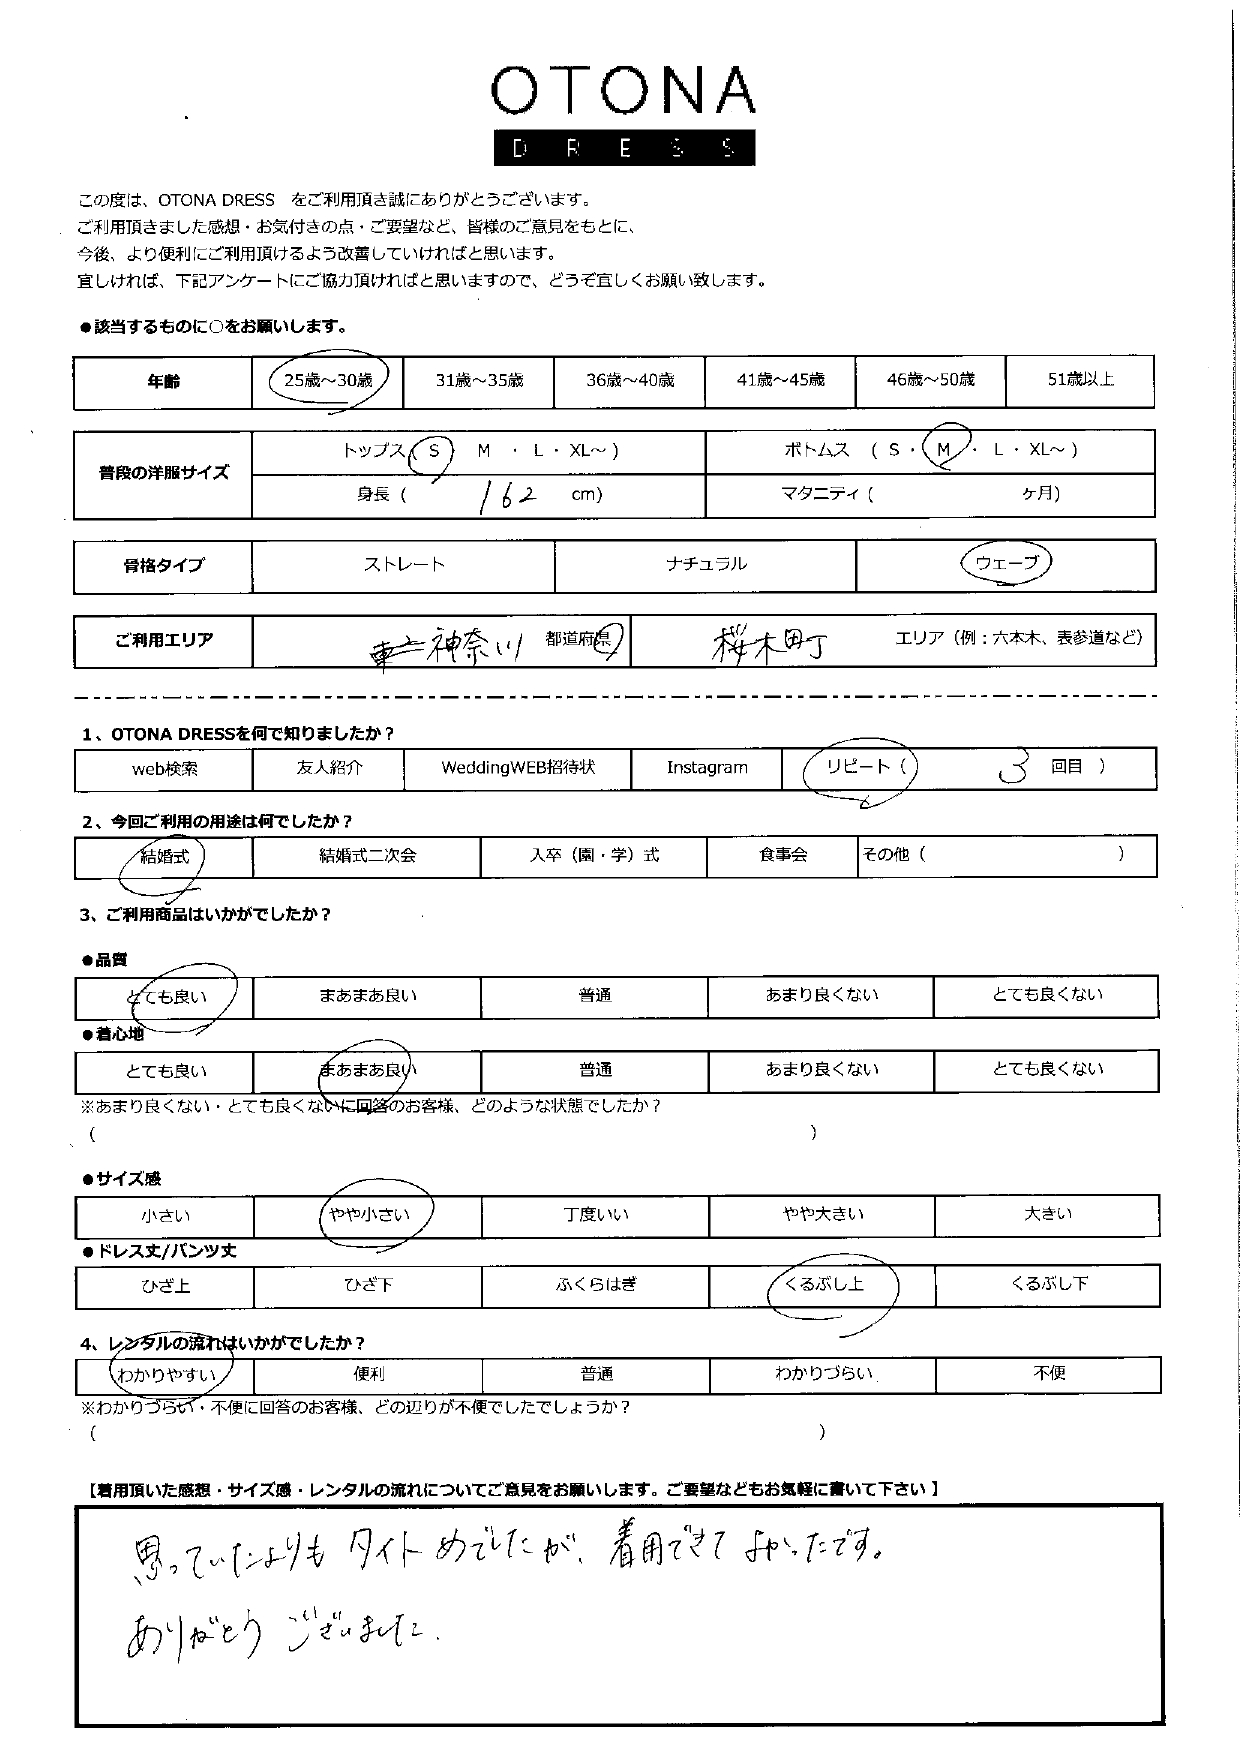 OTONA
DRESS
この度は、OTONA DRESS　をご利用頂き誠にありがとうございます。
ご利用頂きました感想・お気付きの点・ご要望など、皆様のご意見をもとに、
今後、より便利にご利用頂けるよう改善していければと思います。
宜しければ、下記アンケートにご協力頂ければと思いますので、どうぞ宜しくお願い致します。
●該当するものに○をお願いします。
年齢 25歳～30歳 31歳～35歳 36歳～40歳 41歳～45歳 46歳～50歳 51歳以上
普段の洋服サイズ
トップス( S M ・ L ・ XL～ ) ボトムス ( S ・ M ・ L ・ XL～ )
身長 ( 162 cm) マタニティ ( ヶ月)
骨格タイプ ストレート ナチュラル ウェーブ
ご利用エリア 神奈川 都道府県 桜木町 エリア（例：六本木、表参道など）
1、OTONA DRESSを何で知りましたか？
web検索 友人紹介 WeddingWEB招待状 Instagram リピート（ 3 回目 ）
2、今回ご利用の用途は何でしたか？
結婚式 結婚式二次会 入卒（園・学）式 食事会 その他（ ）
3、ご利用商品はいかがでしたか？
●品質
とても良い まあまあ良い 普通 あまり良くない とても良くない
●着心地
とても良い まあまあ良い 普通 あまり良くない とても良くない
※あまり良くない・とても良くないに回答のお客様、どのような状態でしたか？
（ ）
●サイズ感
小さい やや小さい 丁度いい やや大きい 大きい
●ドレス丈/パンツ丈
ひざ上 ひざ下 ふくらはぎ くるぶし上 くるぶし下
4、レンタルの流れはいかがでしたか？
わかりやすい 便利 普通 わかりづらい 不便
※わかりづらい・不便に回答のお客様、どの辺りが不便でしたでしょうか？
（ ）
【着用頂いた感想・サイズ感・レンタルの流れについてご意見をお願いします。ご要望などもお気軽に書いて下さい】
思っていたよりも タイトめでしたが、着用できて よかったです。
ありがとう ございました.